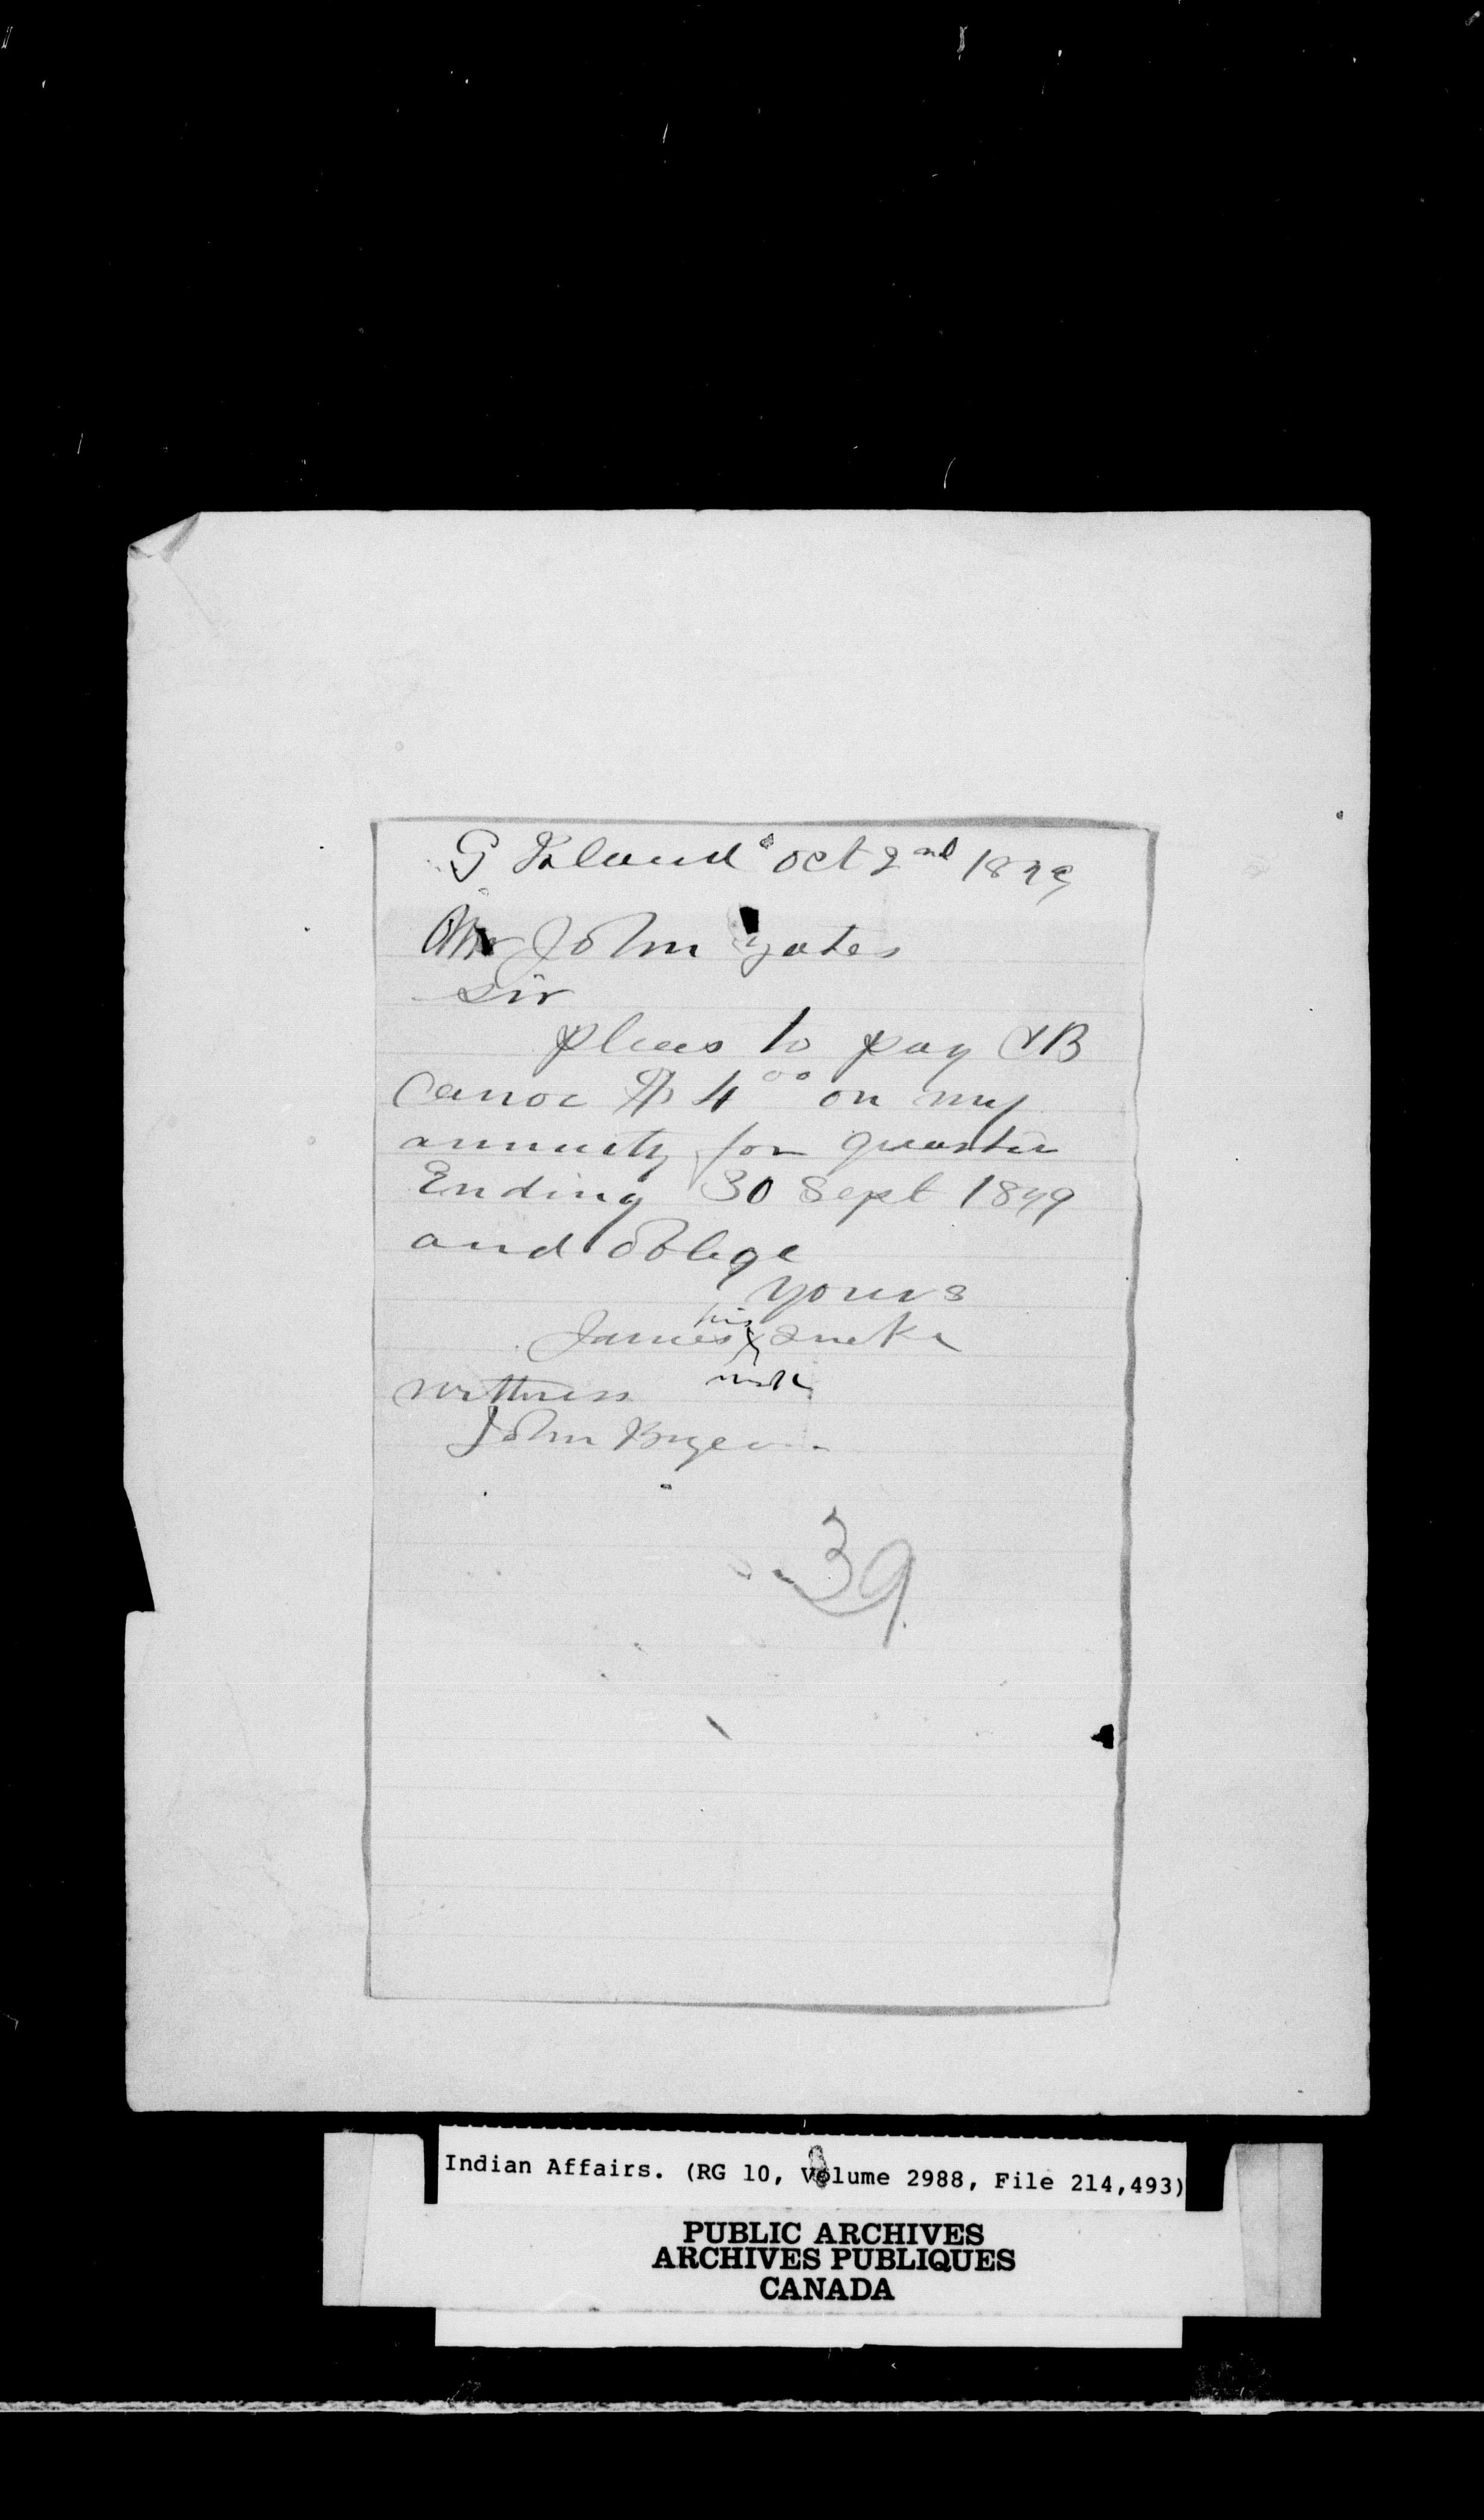 G Island Oct 2nd 1879
Mr John Yates
Sir
pleas to pay J B
Canoe $4 00 on my
annuity for quarter
Ending 30 Sept 1879
and oblege
yours
his
James X Snake
mark
Wittness
John
39
Indian Affairs. (RG 10, Volume 2988, File 214,493)
PUBLIC ARCHIVES
ARCHIVES PUBLIQUES
CANADA